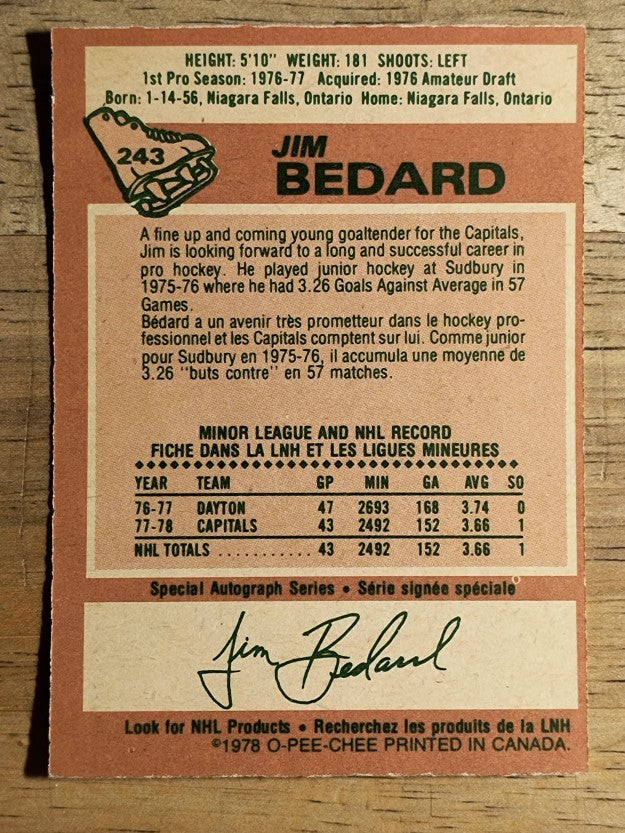 HEIGHT: 5'10" WEIGHT: 181 SHOOTS: LEFT
1st Pro Season: 1976-77 Acquired: 1976 Amateur Draft
Born: 1-14-56, Niagara Falls, Ontario Home: Niagara Falls, Ontario
243
JIM
BEDARD
A fine up and coming young goaltender for the Capitals,
Jim is looking forward to a long and successful career in
pro hockey. He played junior hockey at Sudbury in
1975-76 where he had 3.26 Goals Against Average in 57
Games.
Bédard a un avenir très prometteur dans le hockey pro-
fessionnel et les Capitals comptent sur lui. Comme junior
pour Sudbury en 1975-76, il accumula une moyenne de
3.26 "buts contre" en 57 matches.
MINOR LEAGUE AND NHL RECORD
FICHE DANS LA LNH ET LES LIGUES MINEURES
YEAR TEAM GP MIN GA AVG SO
76-77 DAYTON 47 2693 168 3.74 0
77-78 CAPITALS 43 2492 152 3.66 1
NHL TOTALS ........... 43 2492 152 3.66 1
Special Autograph Series • Série signée spéciale
Jim Bedard
Look for NHL Products • Recherchez les produits de la LNH
©1978 O-PEE-CHEE PRINTED IN CANADA.